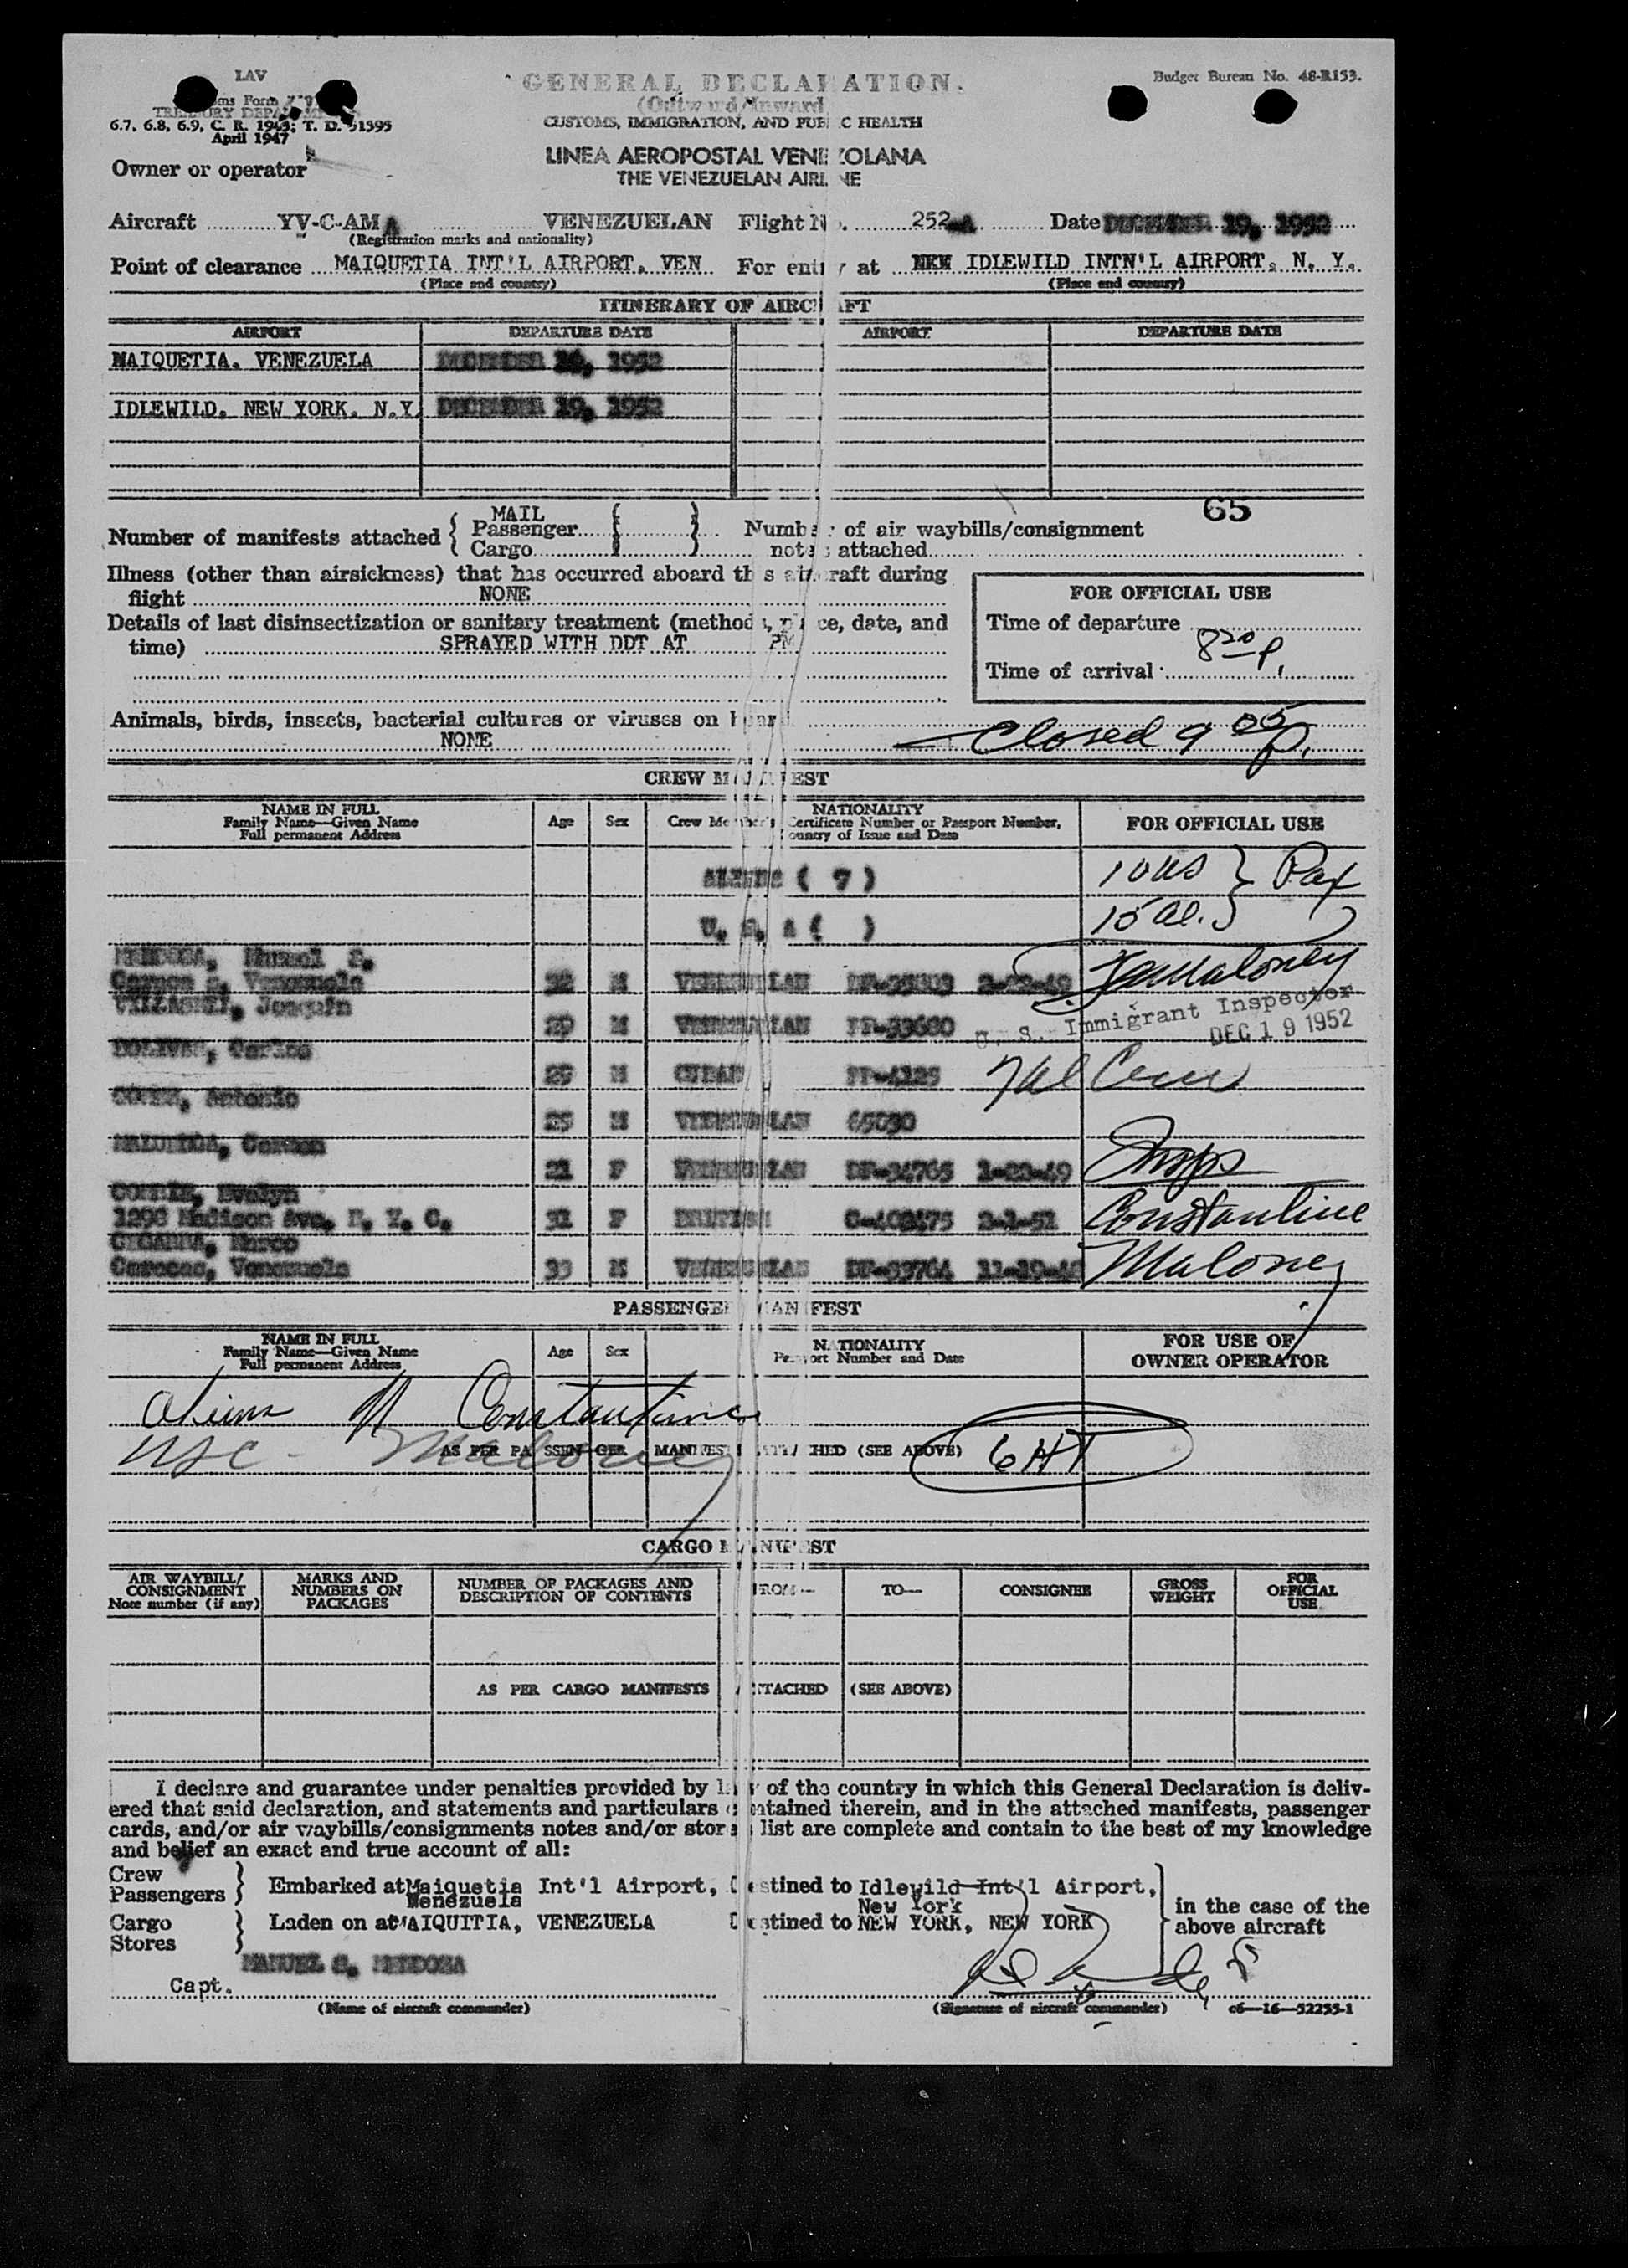 LAV
GENERAL DECLARATION.
Budget Bureau No. 48-R153.
(Outward/Inward)
6.7, 6.8, 6.9, C. R. 1943; T. D. 51595
CUSTOMS, IMMIGRATION, AND PUBLIC HEALTH
April 1947
LINEA AEROPOSTAL VENEZOLANA
Owner or operator
THE VENEZUELAN AIRLINE
Aircraft YV-C-AMA VENEZUELAN Flight No. 252-A Date DECEMBER 19, 1952
(Registration marks and nationality)
Point of clearance MAIQUETIA INT'L AIRPORT. VEN For entry at NEW IDLEWILD INTN'L AIRPORT, N. Y.
(Place and country) (Place and country)
ITINERARY OF AIRCRAFT
AIRPORT DEPARTURE DATE AIRPORT DEPARTURE DATE
MAIQUETIA. VENEZUELA DECEMBER 1952
IDLEWILD. NEW YORK. N.Y. DECEMBER 19, 1952
65
Number of manifests attached { MAIL Passenger Cargo
Number of air waybills/consignment notes attached
Illness (other than airsickness) that has occurred aboard this aircraft during
flight NONE
FOR OFFICIAL USE
Details of last disinsectization or sanitary treatment (methods, place, date, and
time) SPRAYED WITH DDT AT PM
Time of departure
Time of arrival 8 20 P.
Animals, birds, insects, bacterial cultures or viruses on board
NONE
Closed 9 05 p.
CREW MANIFEST
NAME IN FULL
Family Name—Given Name
Full permanent Address
Age Sex
NATIONALITY
Crew Member's Certificate Number or Passport Number,
Country of Issue and Date
FOR OFFICIAL USE
ALIENS ( 7 ) 10 US } Pax
U. S. A ( ) 15 al.
MENDOZA, Manuel S.
Caracas, Venezuela 32 M VENEZUELAN 2-22-49 Maloney
Joaquin
29 M VENEZUELAN PP-33680
U. S. Immigrant Inspector
DEC 19 1952
BOLIVAR, Carlos
29 M CUBAN PP-4125
Antonio
25 M VENEZUELAN 65030
Carmen
21 F VENEZUELAN DF-34765 1-23-49
Evelyn
1298 Madison Ave. N. Y. C. 31 F BRITISH C-402475 2-1-52 Constantine
Marco
Caracas, Venezuela 33 M VENEZUELAN DF-33764 Maloney
PASSENGER MANIFEST
NAME IN FULL
Family Name—Given Name
Full permanent Address
Age Sex
NATIONALITY
Passport Number and Date
FOR USE OF
OWNER OPERATOR
Aliens N Constantine
USC - Maloney
AS PER PASSENGER MANIFEST ATTACHED (SEE ABOVE) 6HT
CARGO MANIFEST
AIR WAYBILL/
CONSIGNMENT
Note number (if any)
MARKS AND
NUMBERS ON
PACKAGES
NUMBER OF PACKAGES AND
DESCRIPTION OF CONTENTS
FROM— TO— CONSIGNEE
GROSS
WEIGHT
FOR
OFFICIAL
USE
AS PER CARGO MANIFESTS ATTACHED (SEE ABOVE)
I declare and guarantee under penalties provided by law of the country in which this General Declaration is deliv-
ered that said declaration, and statements and particulars contained therein, and in the attached manifests, passenger
cards, and/or air waybills/consignments notes and/or stores list are complete and contain to the best of my knowledge
and belief an exact and true account of all:
Crew
Passengers } Embarked at Maiquetia Int'l Airport, Destined to Idlewild Int'l Airport,
Venezuela New York
in the case of the
above aircraft
Cargo
Stores } Laden on at MAIQUITIA, VENEZUELA Destined to NEW YORK, NEW YORK
MANUEL S. MENDOZA
Capt.
(Name of aircraft commander) (Signature of aircraft commander) c6—16—52255-1